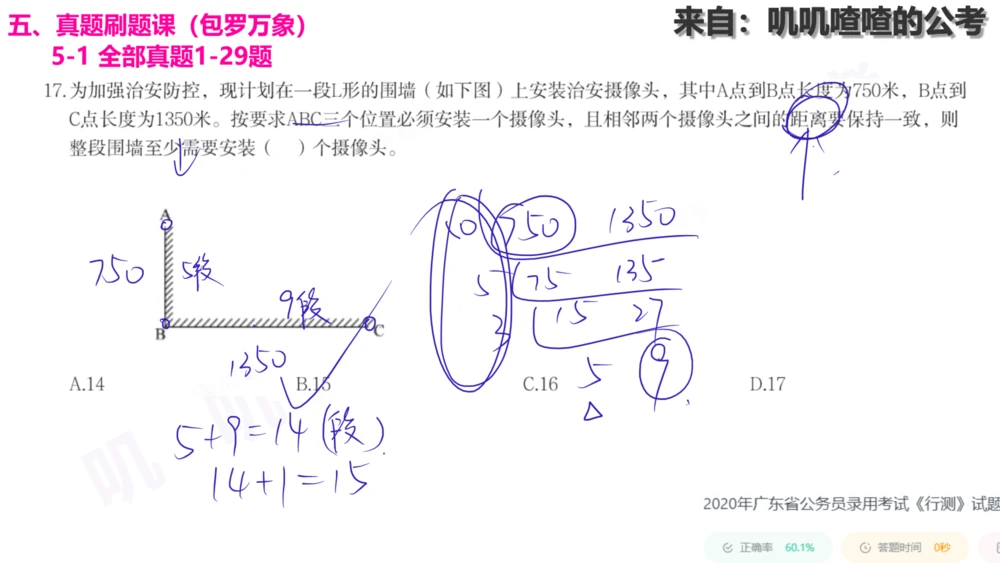 五、真题刷题课（包罗万象）
5-1 全部真题1-29题
来自：叽叽喳喳的公考
17.为加强治安防控，现计划在一段L形的围墙（如下图）上安装治安摄像头，其中A点到B点长度为750米，B点到
C点长度为1350米。按要求ABC三个位置必须安装一个摄像头，且相邻两个摄像头之间的距离要保持一致，则
整段围墙至少需要安装（ ）个摄像头。
A
750 5段
9段
B C
1350
10 750 1350
5 75 135
3 15 27
5 9
A.14 B.15 C.16 D.17
5+9=14(段)
14+1=15
2020年广东省公务员录用考试《行测》试题
正确率 60.1% 答题时间 0秒